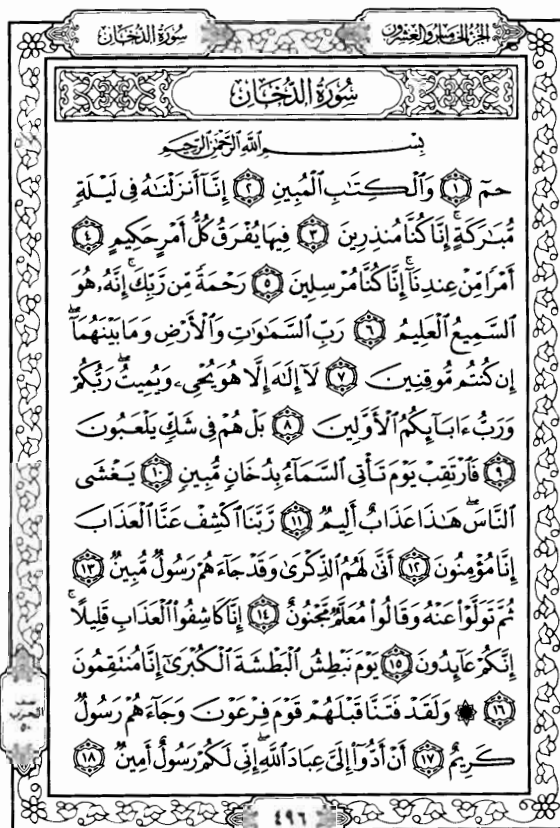 سُورَةُ الدُّخَانِ
الجُزْءُ الخَامِسُ وَالعِشْرُونَ
سُورَةُ الدُّخَانِ
بِسْمِ اللَّهِ الرَّحْمَٰنِ الرَّحِيمِ
حمٓ ١ وَالْكِتَابِ الْمُبِينِ ٢ إِنَّا أَنزَلْنَاهُ فِي لَيْلَةٍ
مُّبَارَكَةٍ ۚ إِنَّا كُنَّا مُنذِرِينَ ٣ فِيهَا يُفْرَقُ كُلُّ أَمْرٍ حَكِيمٍ ٤
أَمْرًا مِّنْ عِندِنَا ۚ إِنَّا كُنَّا مُرْسِلِينَ ٥ رَحْمَةً مِّن رَّبِّكَ ۚ إِنَّهُ هُوَ
السَّمِيعُ الْعَلِيمُ ٦ رَبِّ السَّمَاوَاتِ وَالْأَرْضِ وَمَا بَيْنَهُمَا ۖ
إِن كُنتُم مُّوقِنِينَ ٧ لَا إِلَٰهَ إِلَّا هُوَ يُحْيِي وَيُمِيتُ ۖ رَبُّكُمْ
وَرَبُّ ءَابَآئِكُمُ الْأَوَّلِينَ ٨ بَلْ هُمْ فِي شَكٍّ يَلْعَبُونَ
٩ فَارْتَقِبْ يَوْمَ تَأْتِي السَّمَآءُ بِدُخَانٍ مُّبِينٍ ١٠ يَغْشَى
النَّاسَ ۖ هَٰذَا عَذَابٌ أَلِيمٌ ١١ رَّبَّنَا اكْشِفْ عَنَّا الْعَذَابَ
إِنَّا مُؤْمِنُونَ ١٢ أَنَّىٰ لَهُمُ الذِّكْرَىٰ وَقَدْ جَآءَهُمْ رَسُولٌ مُّبِينٌ ١٣
ثُمَّ تَوَلَّوْا عَنْهُ وَقَالُوا مُعَلَّمٌ مَّجْنُونٌ ١٤ إِنَّا كَاشِفُوا الْعَذَابِ قَلِيلًا ۚ
إِنَّكُمْ عَآئِدُونَ ١٥ يَوْمَ نَبْطِشُ الْبَطْشَةَ الْكُبْرَىٰ إِنَّا مُنتَقِمُونَ
١٦ ۞ وَلَقَدْ فَتَنَّا قَبْلَهُمْ قَوْمَ فِرْعَوْنَ وَجَآءَهُمْ رَسُولٌ
كَرِيمٌ ١٧ أَنْ أَدُّوٓا إِلَيَّ عِبَادَ اللَّهِ ۖ إِنِّي لَكُمْ رَسُولٌ أَمِينٌ ١٨
نصف
الحزب
٥٠
٤٩٦